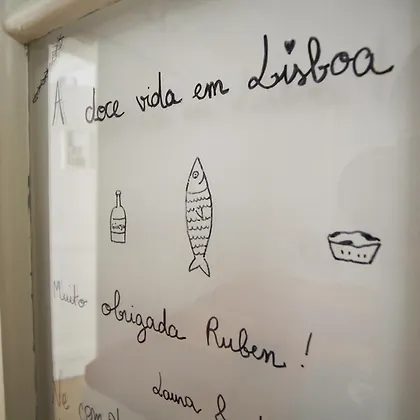 A doce vida em Lisboa
Muito obrigada Ruben!
Laura &